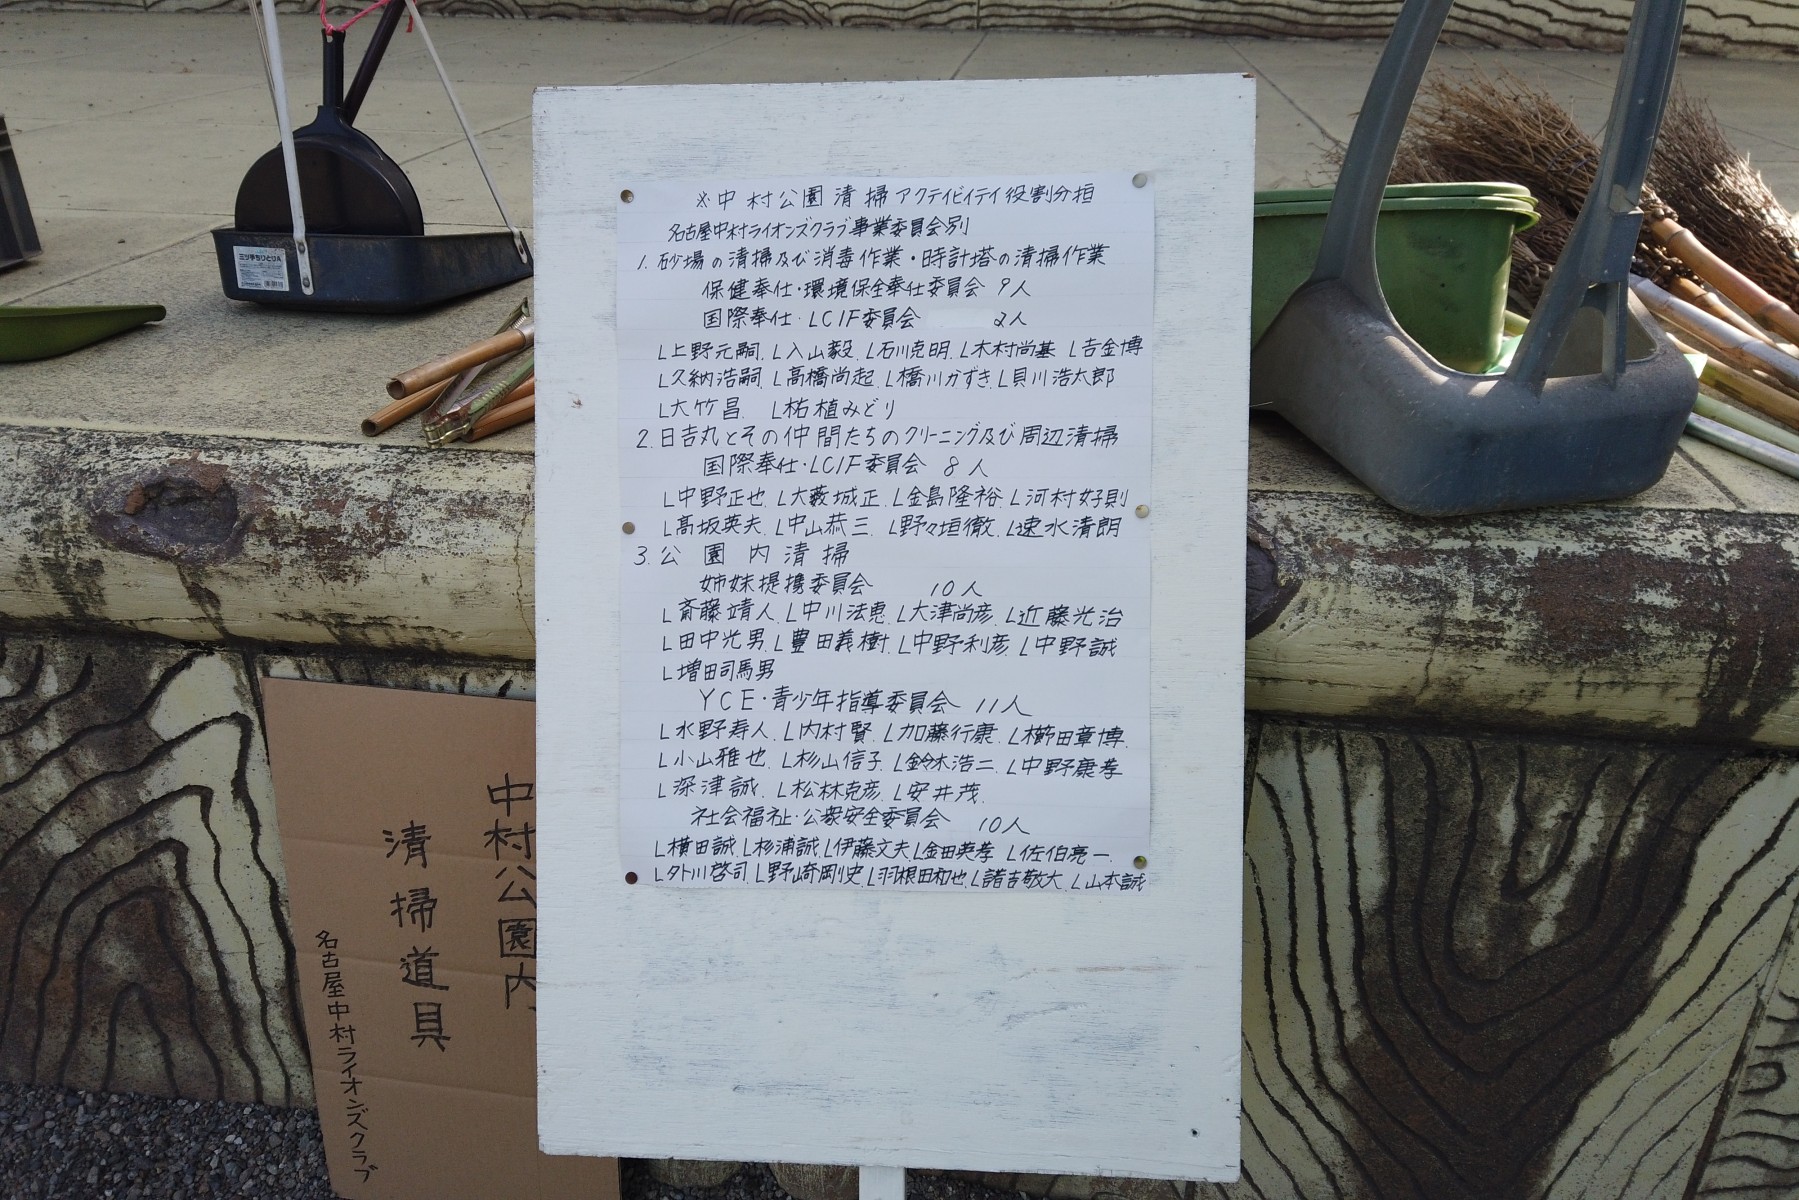 ※中村公園清掃アクテイビイテイ役割分担
名古屋中村ライオンズクラブ事業委員会別
1. 砂場の清掃及び消毒作業・時計塔の清掃作業
保健奉仕・環境保全奉仕委員会 9人
国際奉仕・LCIF委員会 2人
L上野元嗣. L入山毅. L石川克明. L木村尚基 L吉金博
L久納浩嗣. L高橋尚起. L橋川かずき. L貝川浩太郎
L大竹昌. L柘植みどり
2. 日吉丸とその仲間たちのクリーニング及び周辺清掃
国際奉仕・LCIF委員会 8人
L中野正也 L大藪城正. L金島隆裕. L河村好則
L髙坂英夫. L中山恭三. L野々垣徹. L速水清朗
3. 公園内清掃
姉妹提携委員会 10人
L斎藤靖人. L中川法恵. L大津尚彦. L近藤光治
L田中光男. L豊田義樹. L中野利彦. L中野誠
L増田司馬男
YCE・青少年指導委員会 11人
L水野寿人. L内村賢. L加藤行康. L櫛田章博.
L小山雅也. L杉山信子. L鈴木浩二. L中野康孝
L深津誠. L松林克彦. L安井茂.
社会福祉・公衆安全委員会 10人
L横田誠. L杉浦誠. L伊藤文夫. L金田英孝. L佐伯亮一.
L外川啓司. L野崎剛史. L羽根田和也. L諸吉敬大. L山本誠
中村公園内
清掃道具
名古屋中村ライオンズクラブ
三ツ手ちりとりA